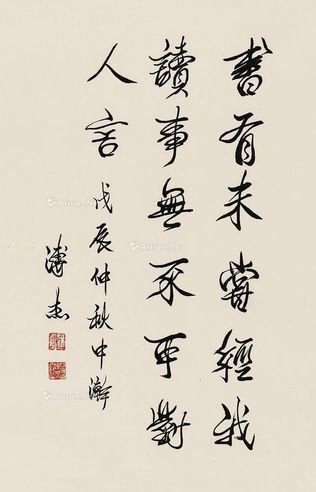 書有未嘗經我
讀事無不可對
人言 戊辰仲秋中澣
溥杰
Artron.Net